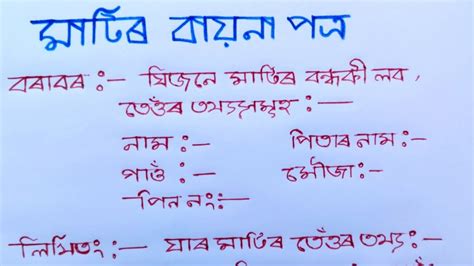 মাটিৰ বায়না পত্ৰ
বৰাবৰ :— যিজনে মাটিৰ বন্ধকী লব,
তেওঁৰ তথ্যসমূহ :—
নাম :— পিতাৰ নাম :—
গাওঁ :— মৌজা :—
পিন নং :—
লিখিতং :— যাৰ মাটিৰ তেওঁৰ তথ্য :—